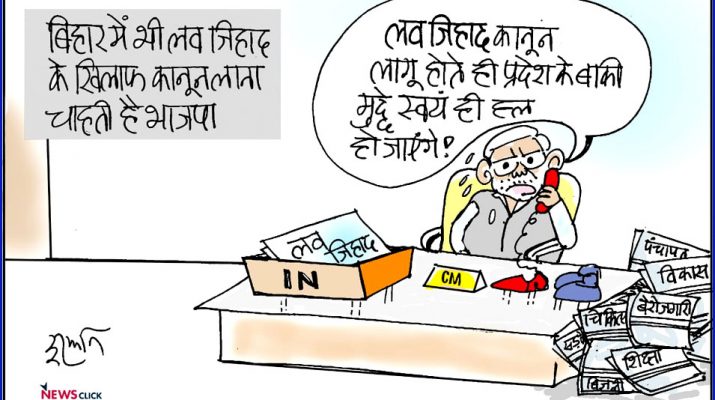 बिहार में भी लव जिहाद
के खिलाफ कानून लाना
चाहती है भाजपा
लव जिहाद कानून
लागू होते ही प्रदेश के बाकी
मुद्दे स्वयं ही हल
हो जाएंगे?
लव जिहाद
IN
CM
पंचायत
विकास
बेरोजगारी
शिक्षा
NEWSCLICK